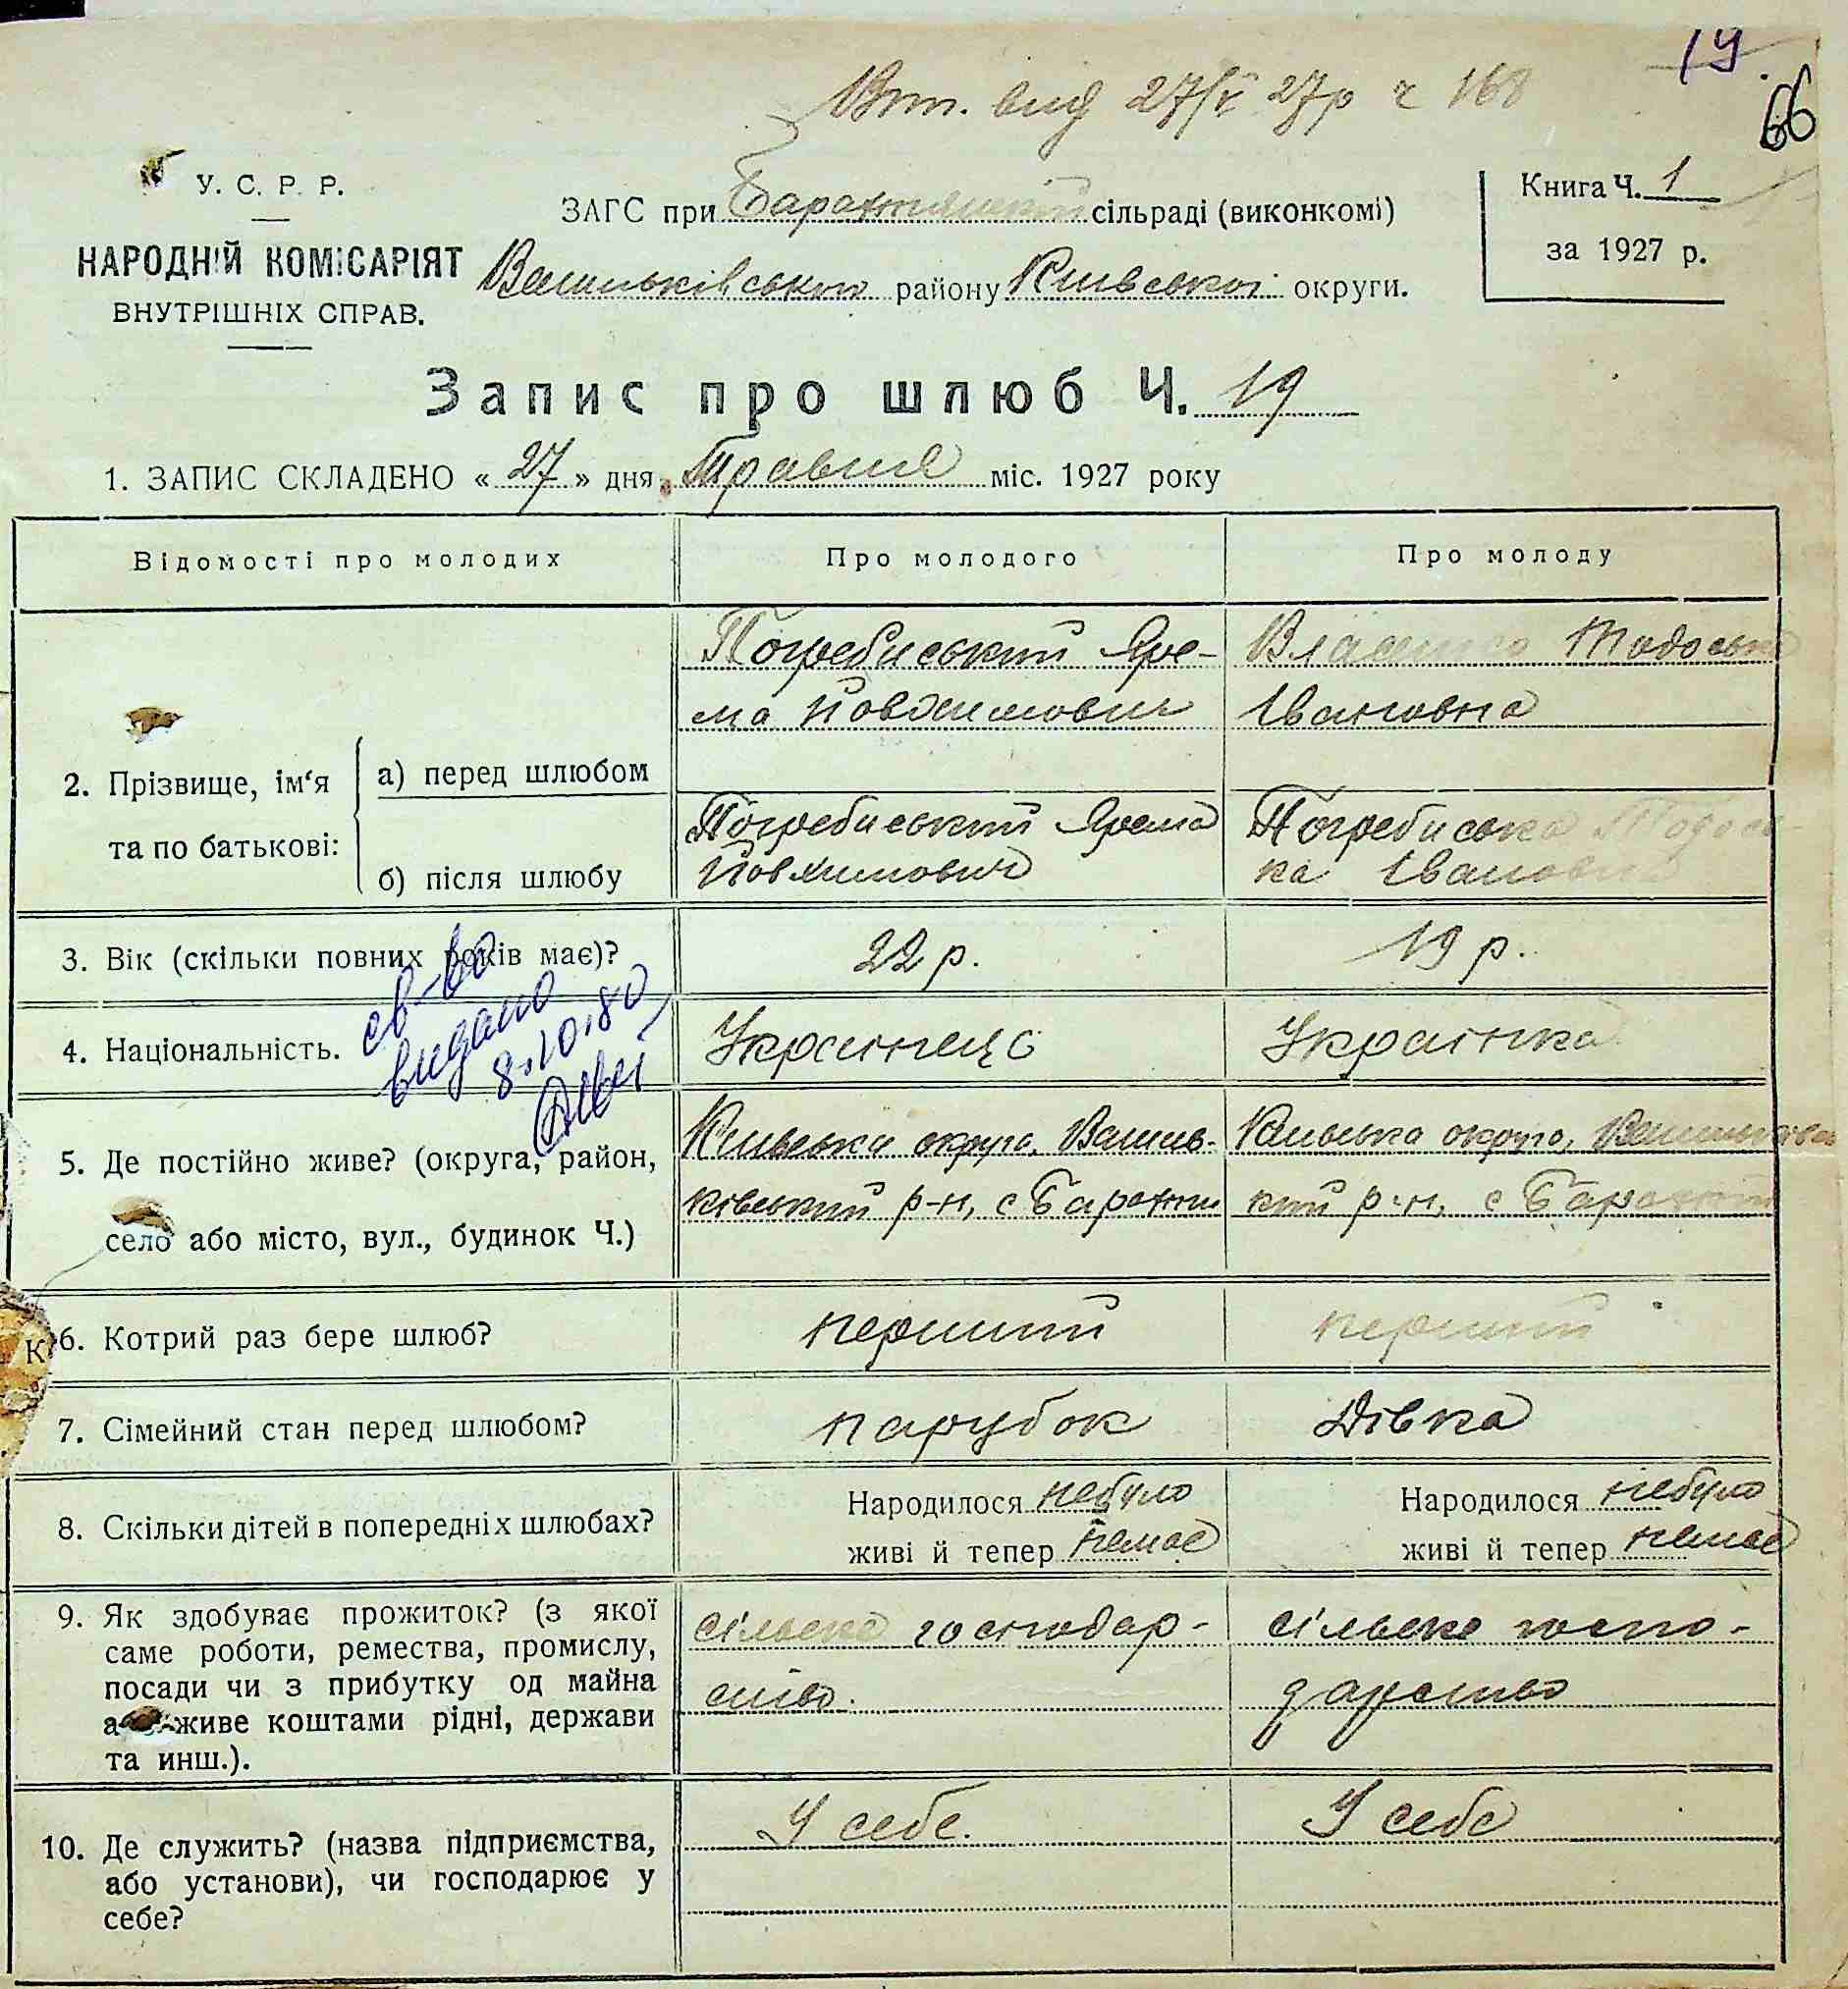 19.
66
Вит. вид 27/V 27р ч 168
У. С. Р. Р.
НАРОДНІЙ КОМІСАРІЯТ
ВНУТРІШНІХ СПРАВ.
ЗАГС при Барахтянській сільраді (виконкомі)
Васильківського району Київської округи.
Книга Ч. 1
за 1927 р.
Запис про шлюб Ч. 19
1. ЗАПИС СКЛАДЕНО « 27 » дня Травня міс. 1927 року
Відомості про молодих
Про молодого
Про молоду
2. Прізвище, ім‘я
та по батькові:
а) перед шлюбом
Погребиський Яре-
ма Йовхимович
Тодоська
Івановна
б) після шлюбу
Погребиський Ярема
Йовхимович
Погребиська Тодось-
ка Івановна
3. Вік (скільки повних років має)?
22 р.
19 р.
4. Національність.
Українець
Українка
св-во
видано
8.10.80
5. Де постійно живе? (округа, район,
село або місто, вул., будинок Ч.)
Київська округа, Василь-
ківський р-н, с Барахти
Київська округа, Васильківсь
кий р-н, с Барахти
6. Котрий раз бере шлюб?
перший
перший
7. Сімейний стан перед шлюбом?
парубок
Дівка
8. Скільки дітей в попередніх шлюбах?
Народилося небуло
живі й тепер немає
Народилося небуло
живі й тепер немає
9. Як здобуває прожиток? (з якої
саме роботи, ремества, промислу,
посади чи з прибутку од майна
живе коштами рідні, держави
та инш.).
сільське господар-
ство.
сільське госпо-
дарство
10. Де служить? (назва підприємства,
або установи), чи господарює у
себе?
У себе.
У себе